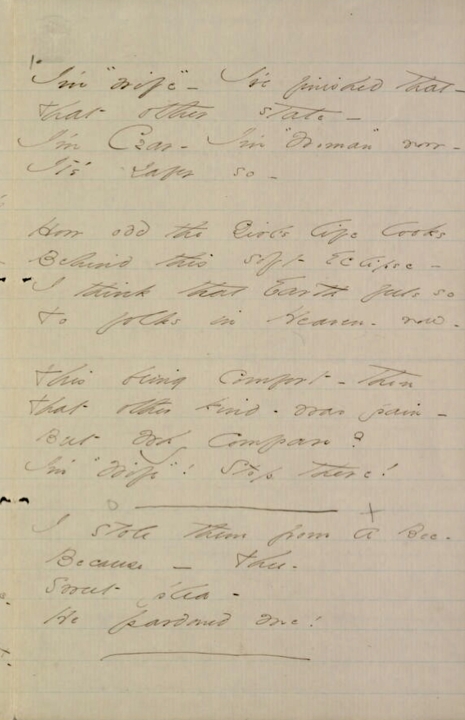 I'm "wife" - I've finished that -
that other state -
I'm Czar - I'm "Woman" now -
It's safer so -
How odd the Girl's life looks
Behind this soft Eclipse -
I think that Earth feels so
to folks in Heaven - now -
This being comfort - then
that other kind - was pain -
But why compare?
I'm "Wife"! Stop there!
I stole them from a Bee -
Because - thee -
Sweet plea -
He pardoned me!